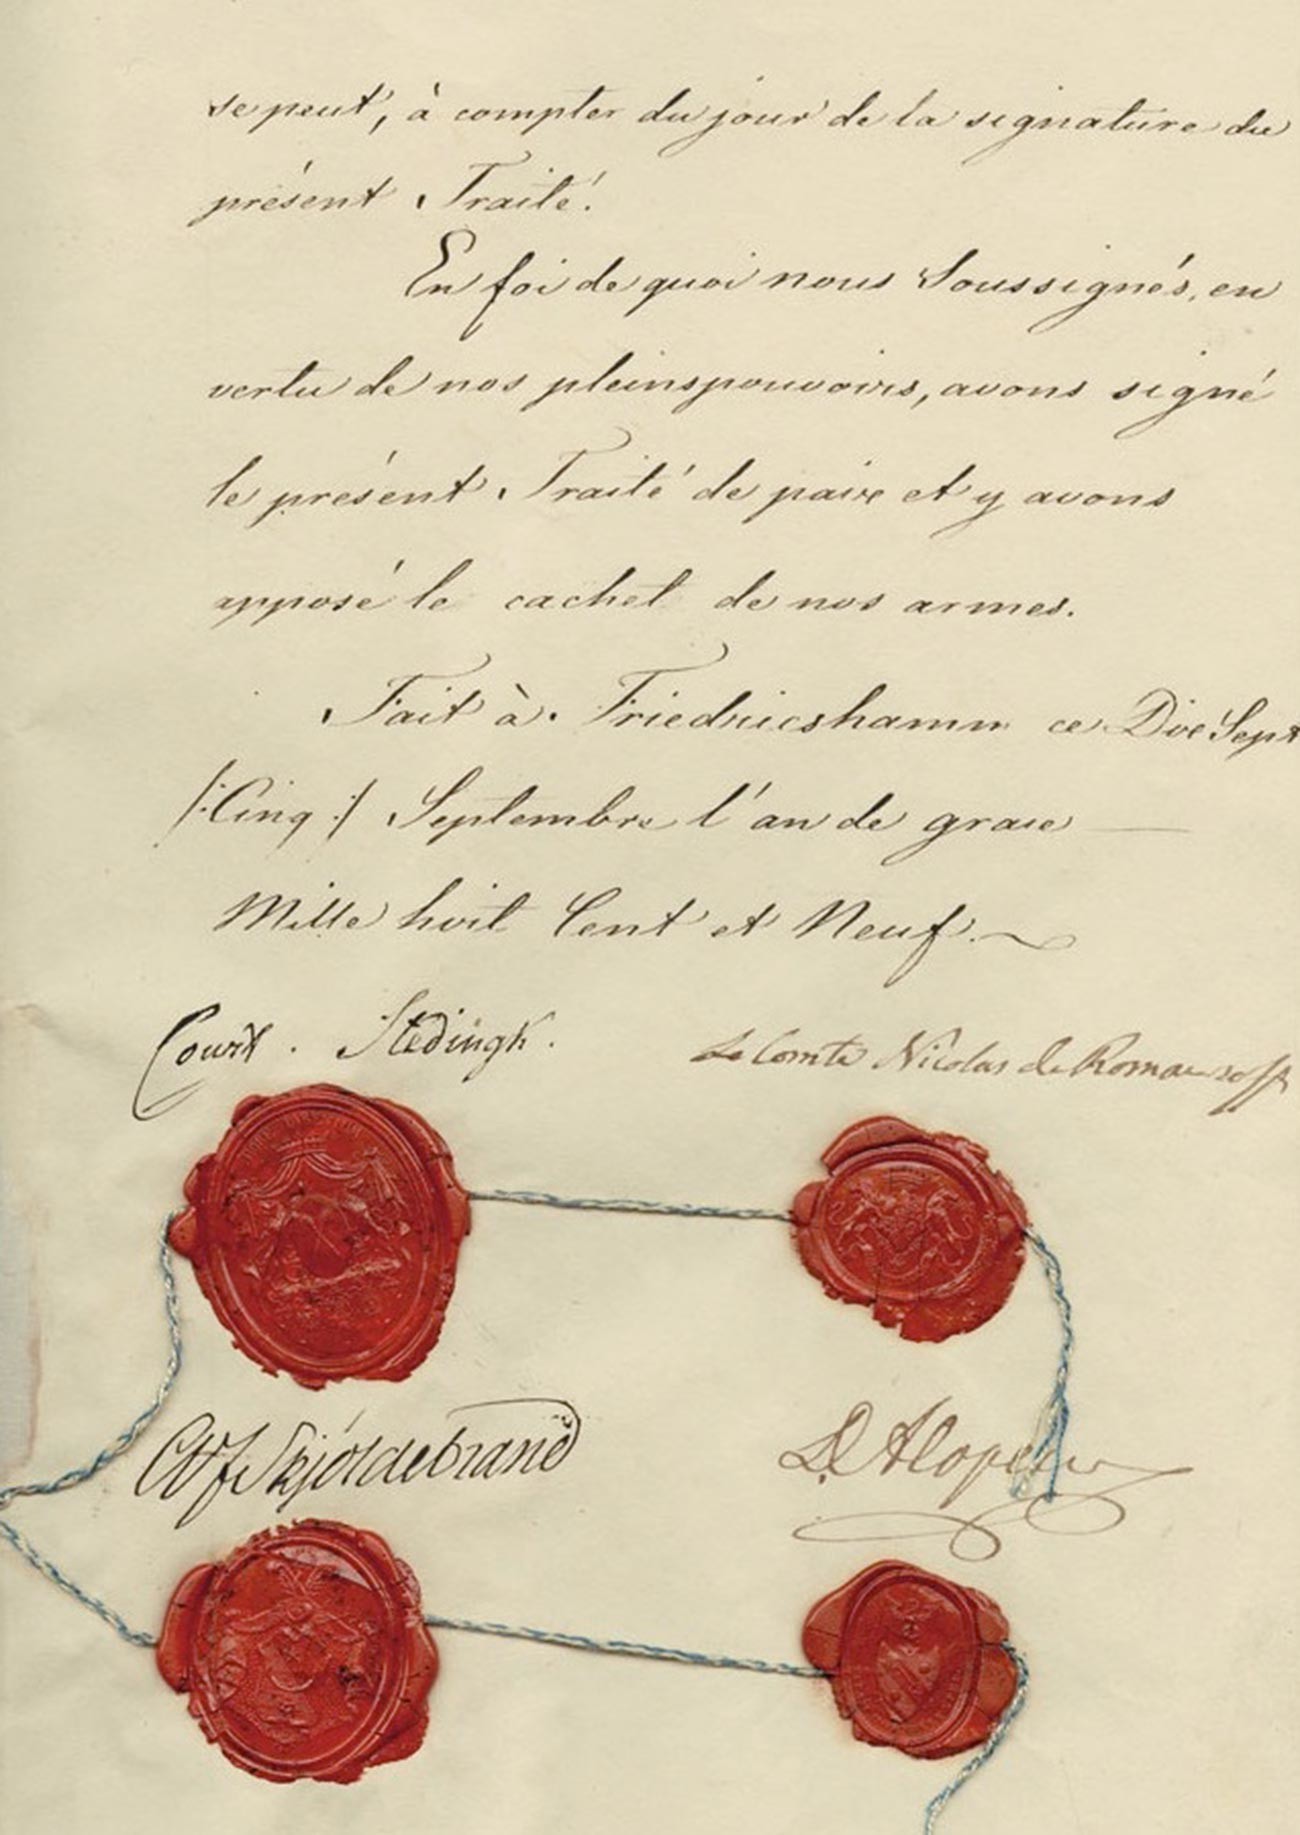 se peut, à compter du jour de la signature du
présent Traité.
En foi de quoi nous Soussignés, en
vertu de nos pleinspouvoirs, avons signé
le présent Traité de paix et y avons
apposé le cachet de nos armes.
Fait à Friedricshamm ce Dix Sept
/:Cinq:/ Septembre l'an de grace
Mille huit Cent et Neuf.
Court. Stedingk.
Le Comte Nicolas de Romanzoff
Skjöldebrand
D Alopeus